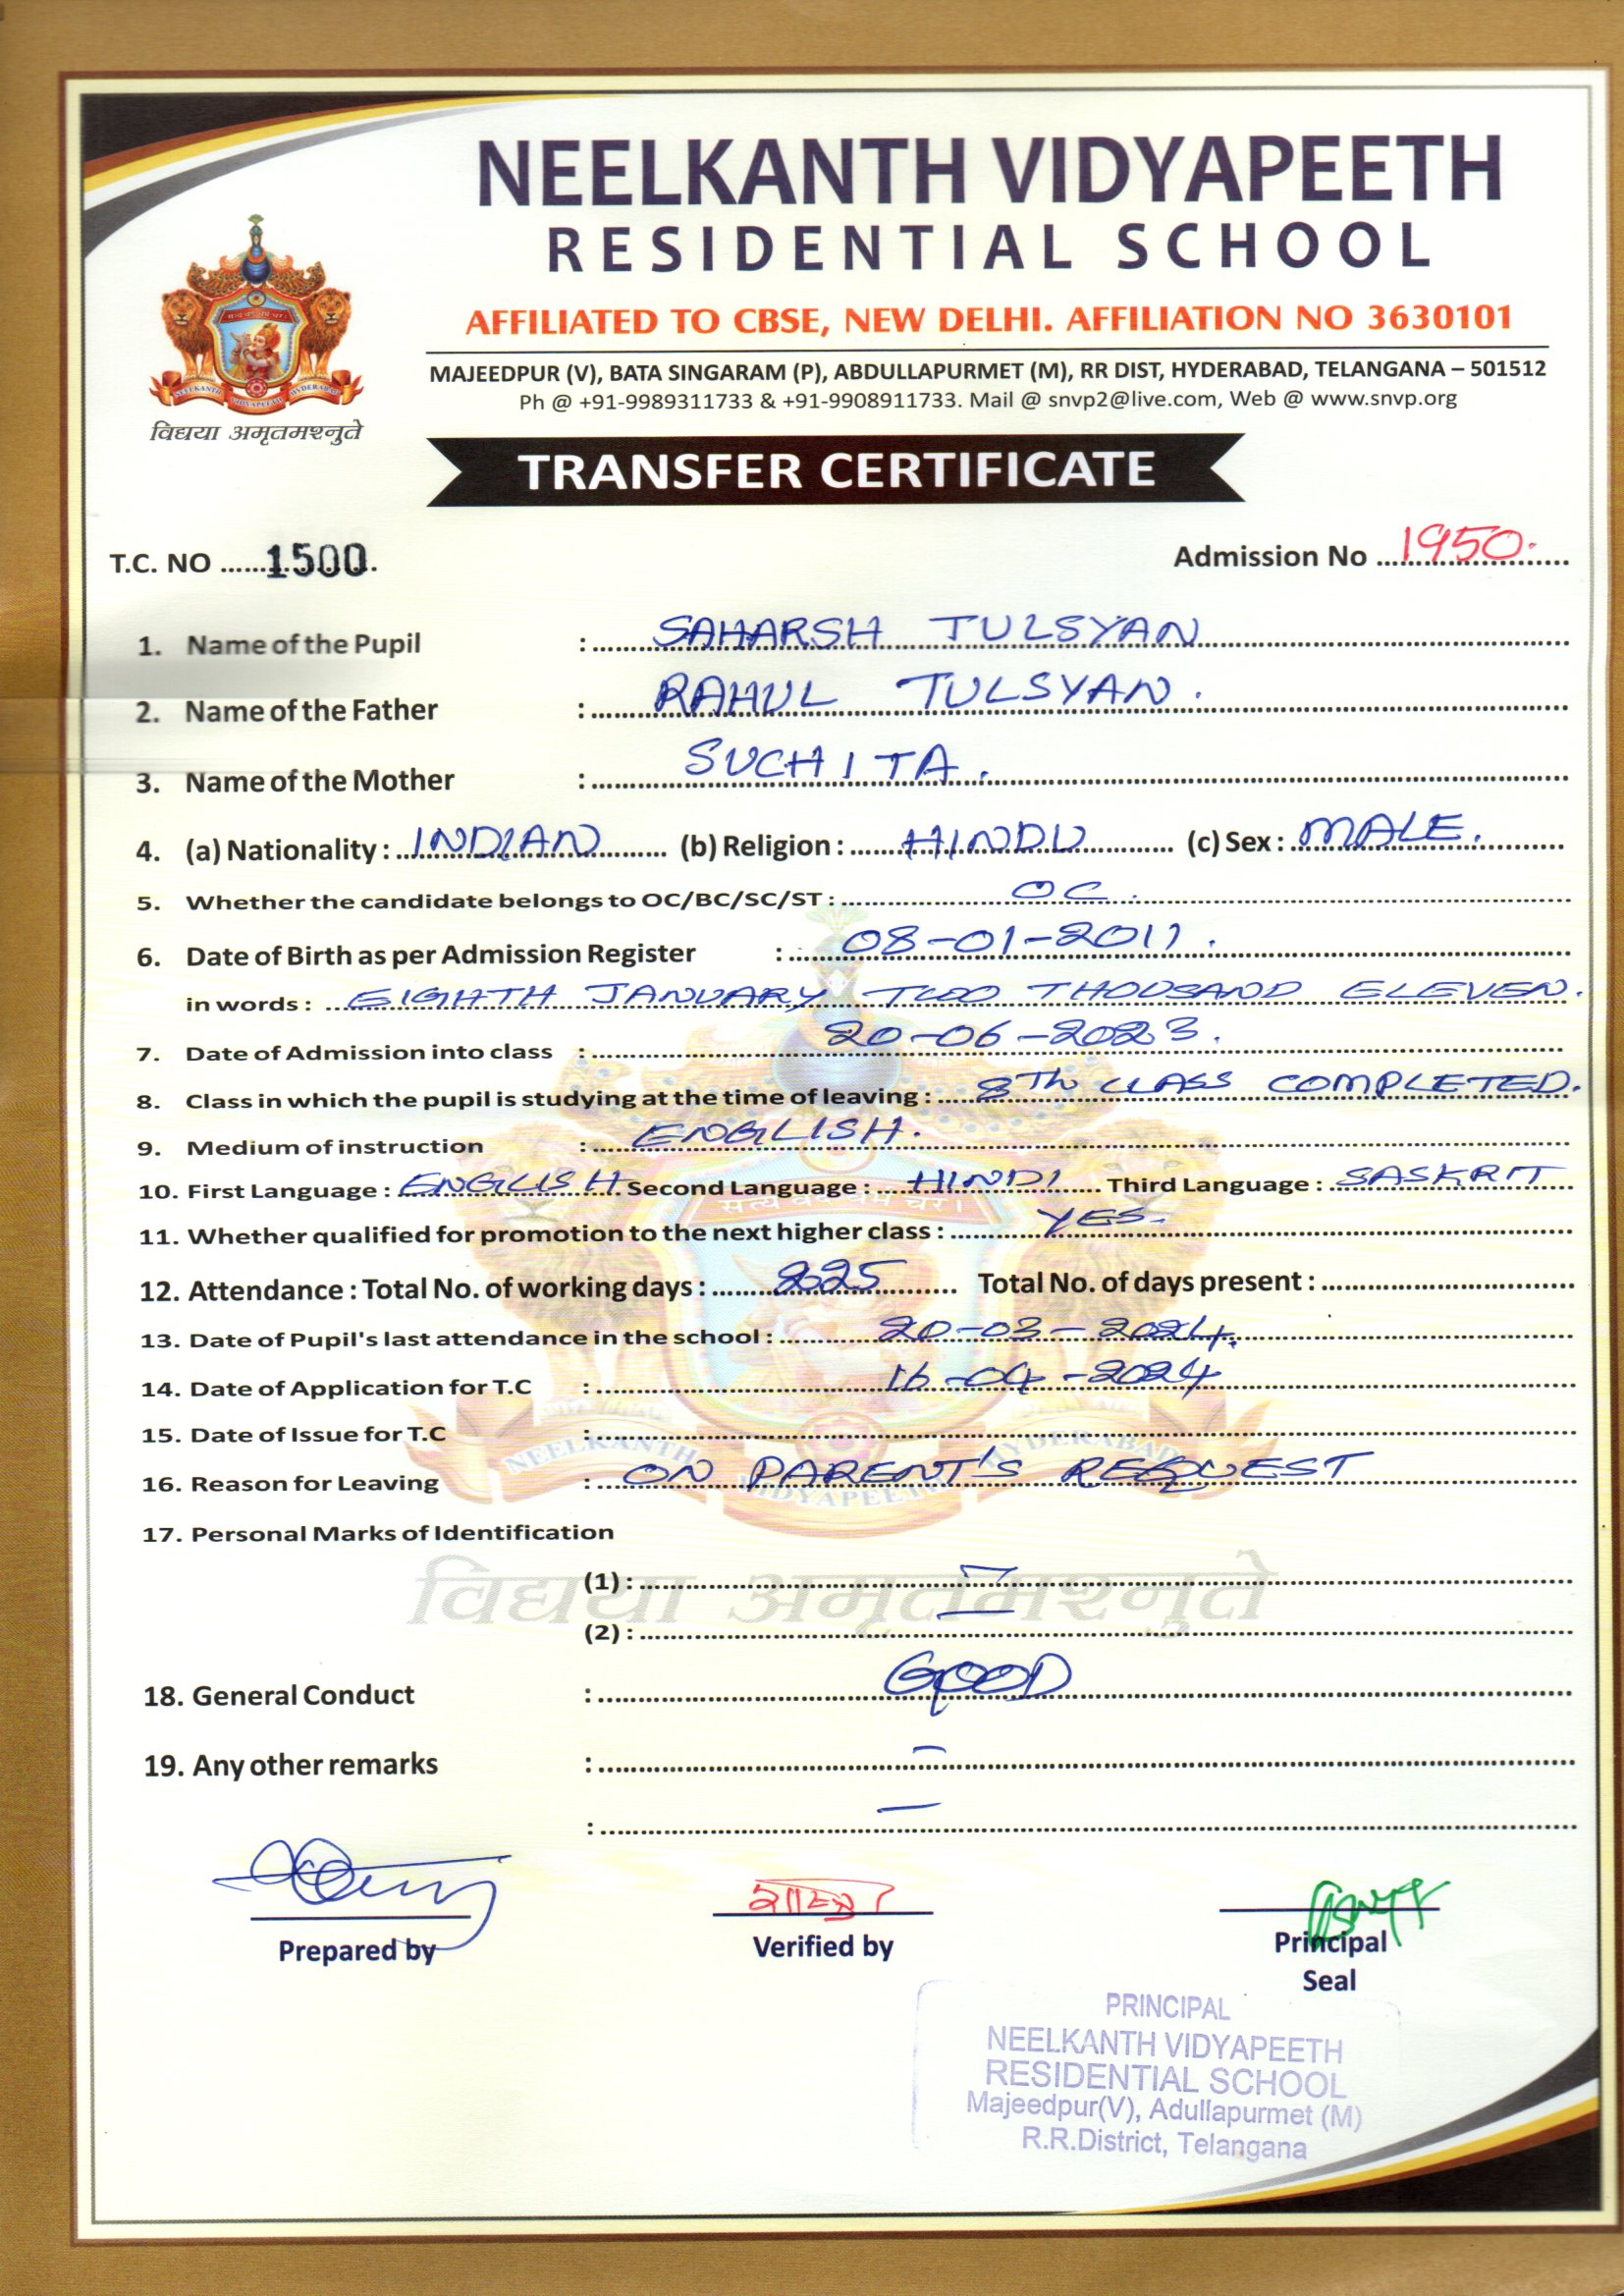 NEELKANTH VIDYAPEETH
RESIDENTIAL SCHOOL
AFFILIATED TO CBSE, NEW DELHI. AFFILIATION NO 3630101
MAJEEDPUR (V), BATA SINGARAM (P), ABDULLAPURMET (M), RR DIST, HYDERABAD, TELANGANA – 501512
Ph @ +91-9989311733 & +91-9908911733. Mail @ snvp2@live.com, Web @ www.snvp.org
NEELKANTH VIDYAPEETH HYDERABAD
विद्यया अमृतमश्नुते
TRANSFER CERTIFICATE
T.C. NO ......1500. Admission No ...1950.
1. Name of the Pupil : SAHARSH TULSYAN
2. Name of the Father : RAHUL TULSYAN.
3. Name of the Mother : SUCHITA.
4. (a) Nationality : INDIAN (b) Religion : HINDU (c) Sex : MALE.
5. Whether the candidate belongs to OC/BC/SC/ST : OC.
6. Date of Birth as per Admission Register : 08-01-2011.
in words : EIGHTH JANUARY TWO THOUSAND ELEVEN.
7. Date of Admission into class : 20-06-2023.
8. Class in which the pupil is studying at the time of leaving : 8Th CLASS COMPLETED.
9. Medium of instruction : ENGLISH.
10. First Language : ENGLISH Second Language : HINDI Third Language : SASKRIT
11. Whether qualified for promotion to the next higher class : YES.
12. Attendance : Total No. of working days : Total No. of days present :
13. Date of Pupil's last attendance in the school : 20-03-2024.
14. Date of Application for T.C : 16-04-2024
15. Date of Issue for T.C :
16. Reason for Leaving : ON PARENT'S REQUEST
17. Personal Marks of Identification
(1) : —
(2) : —
विद्यया अमृतमश्नुते
18. General Conduct : GOOD
19. Any other remarks : —
: —
Prepared by Verified by Principal
Seal
PRINCIPAL
NEELKANTH VIDYAPEETH
RESIDENTIAL SCHOOL
Majeedpur(V), Adullapurmet (M)
R.R.District, Telangana